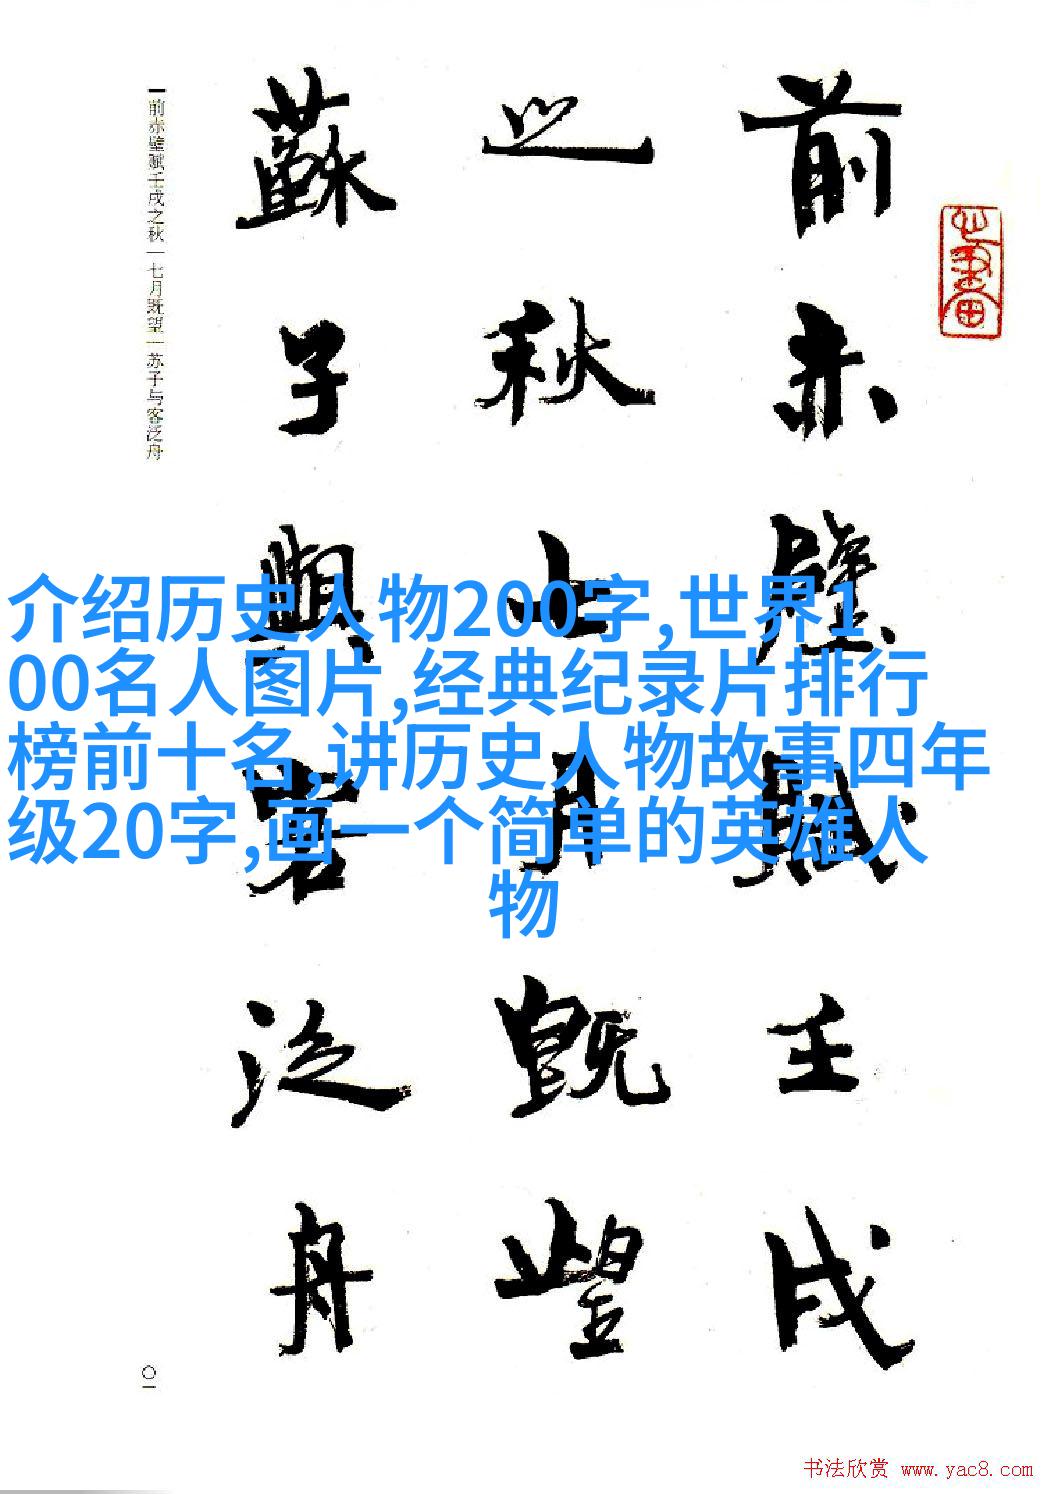 前赤壁賦壬戌
之秋七月既望
蘇子與客泛舟
前赤壁赋壬戌之秋｜七月既望｜苏子与客泛舟
〇一
介绍历史人物200字,世界1
00名人图片,经典纪录片排行
榜前十名,讲历史人物故事四年
级20字,画一个简单的英雄人
物
书法欣赏 www.yac8.com